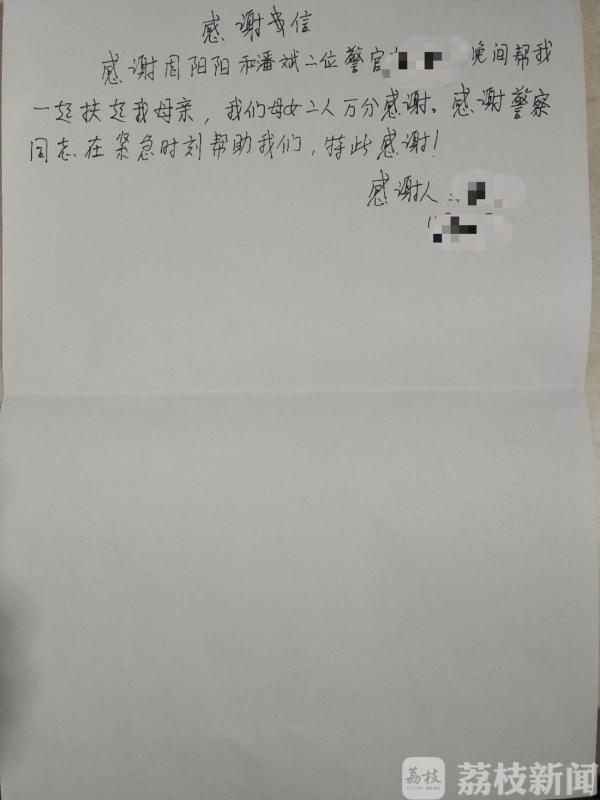 感谢信
感谢周阳阳和潘斌二位警官 晚间帮我
一起扶起我母亲，我们母女二人万分感谢。感谢警察
同志在紧急时刻帮助我们，特此感谢！
感谢人
荔枝
荔枝新闻